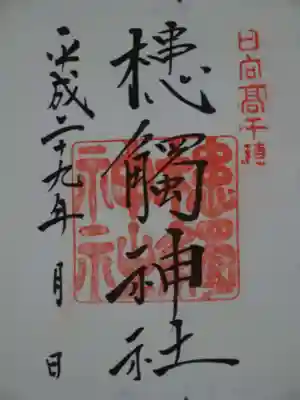 日向高千穂
槵觸神社
槵觸神社
平成二十九年 月 日